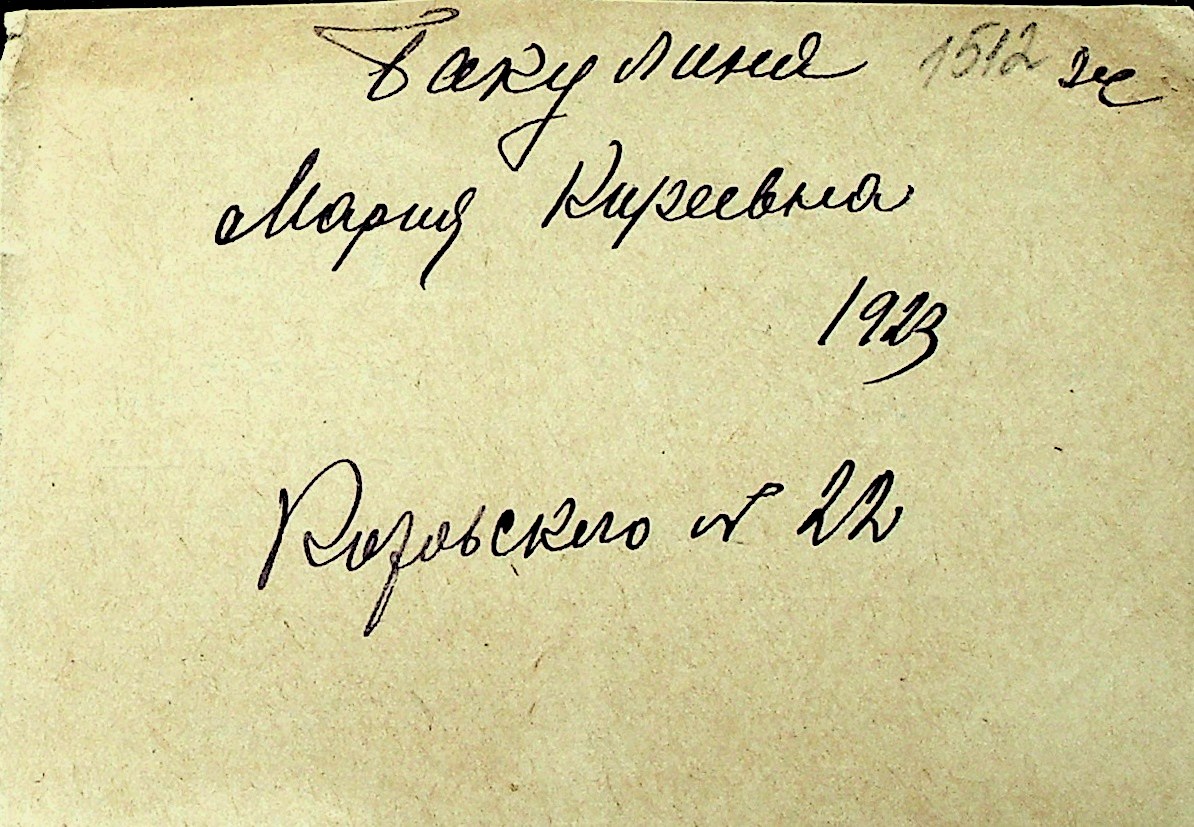 Бакулина 1512 эч
Мария Киреевна
1923
Воровского № 22